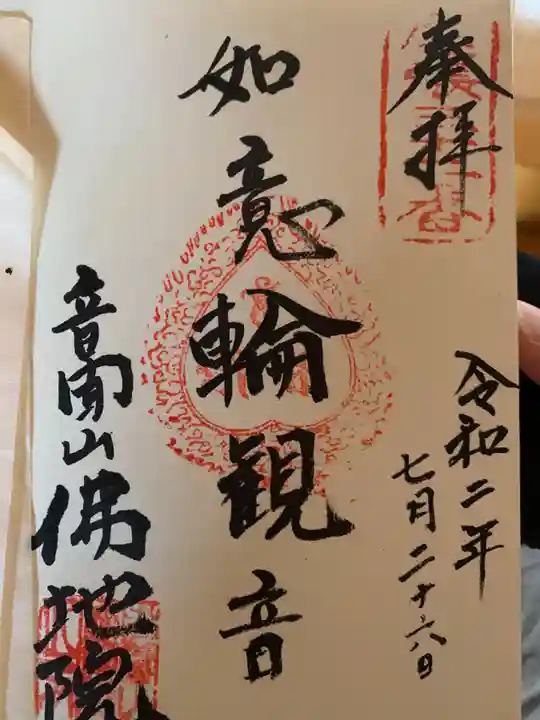 奉拝
令和二年
七月二十六日
如意輪観音
音聞山佛地院